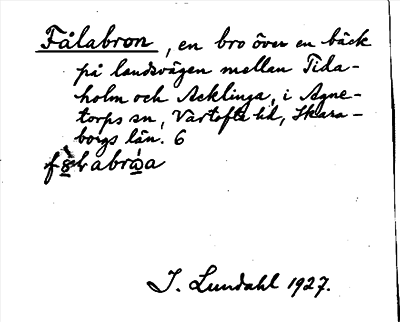 Fålabron, en bro över en bäck
på landsvägen mellan Tida-
holm och Acklinga, i Agne-
torps sn, Vartofta hd, Skara-
borgs län. 6
I. Lundahl 1927.